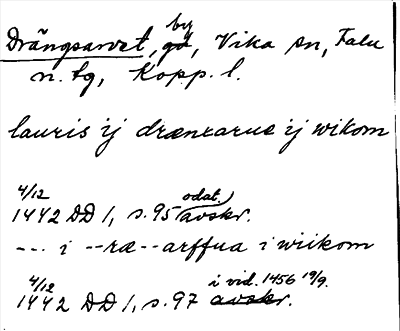 Drängsarvet, by gd, Vika sn, Falu
n. tg, Kopp. l.
lauris ij drænxarue ij wikom
4/12 1442 DD 1, s. 95 odat. avskr.
--- i --ræ--arffua i wiikom
4/12 1442 DD 1, s. 97 i vid. 1456 19/9. avskr.